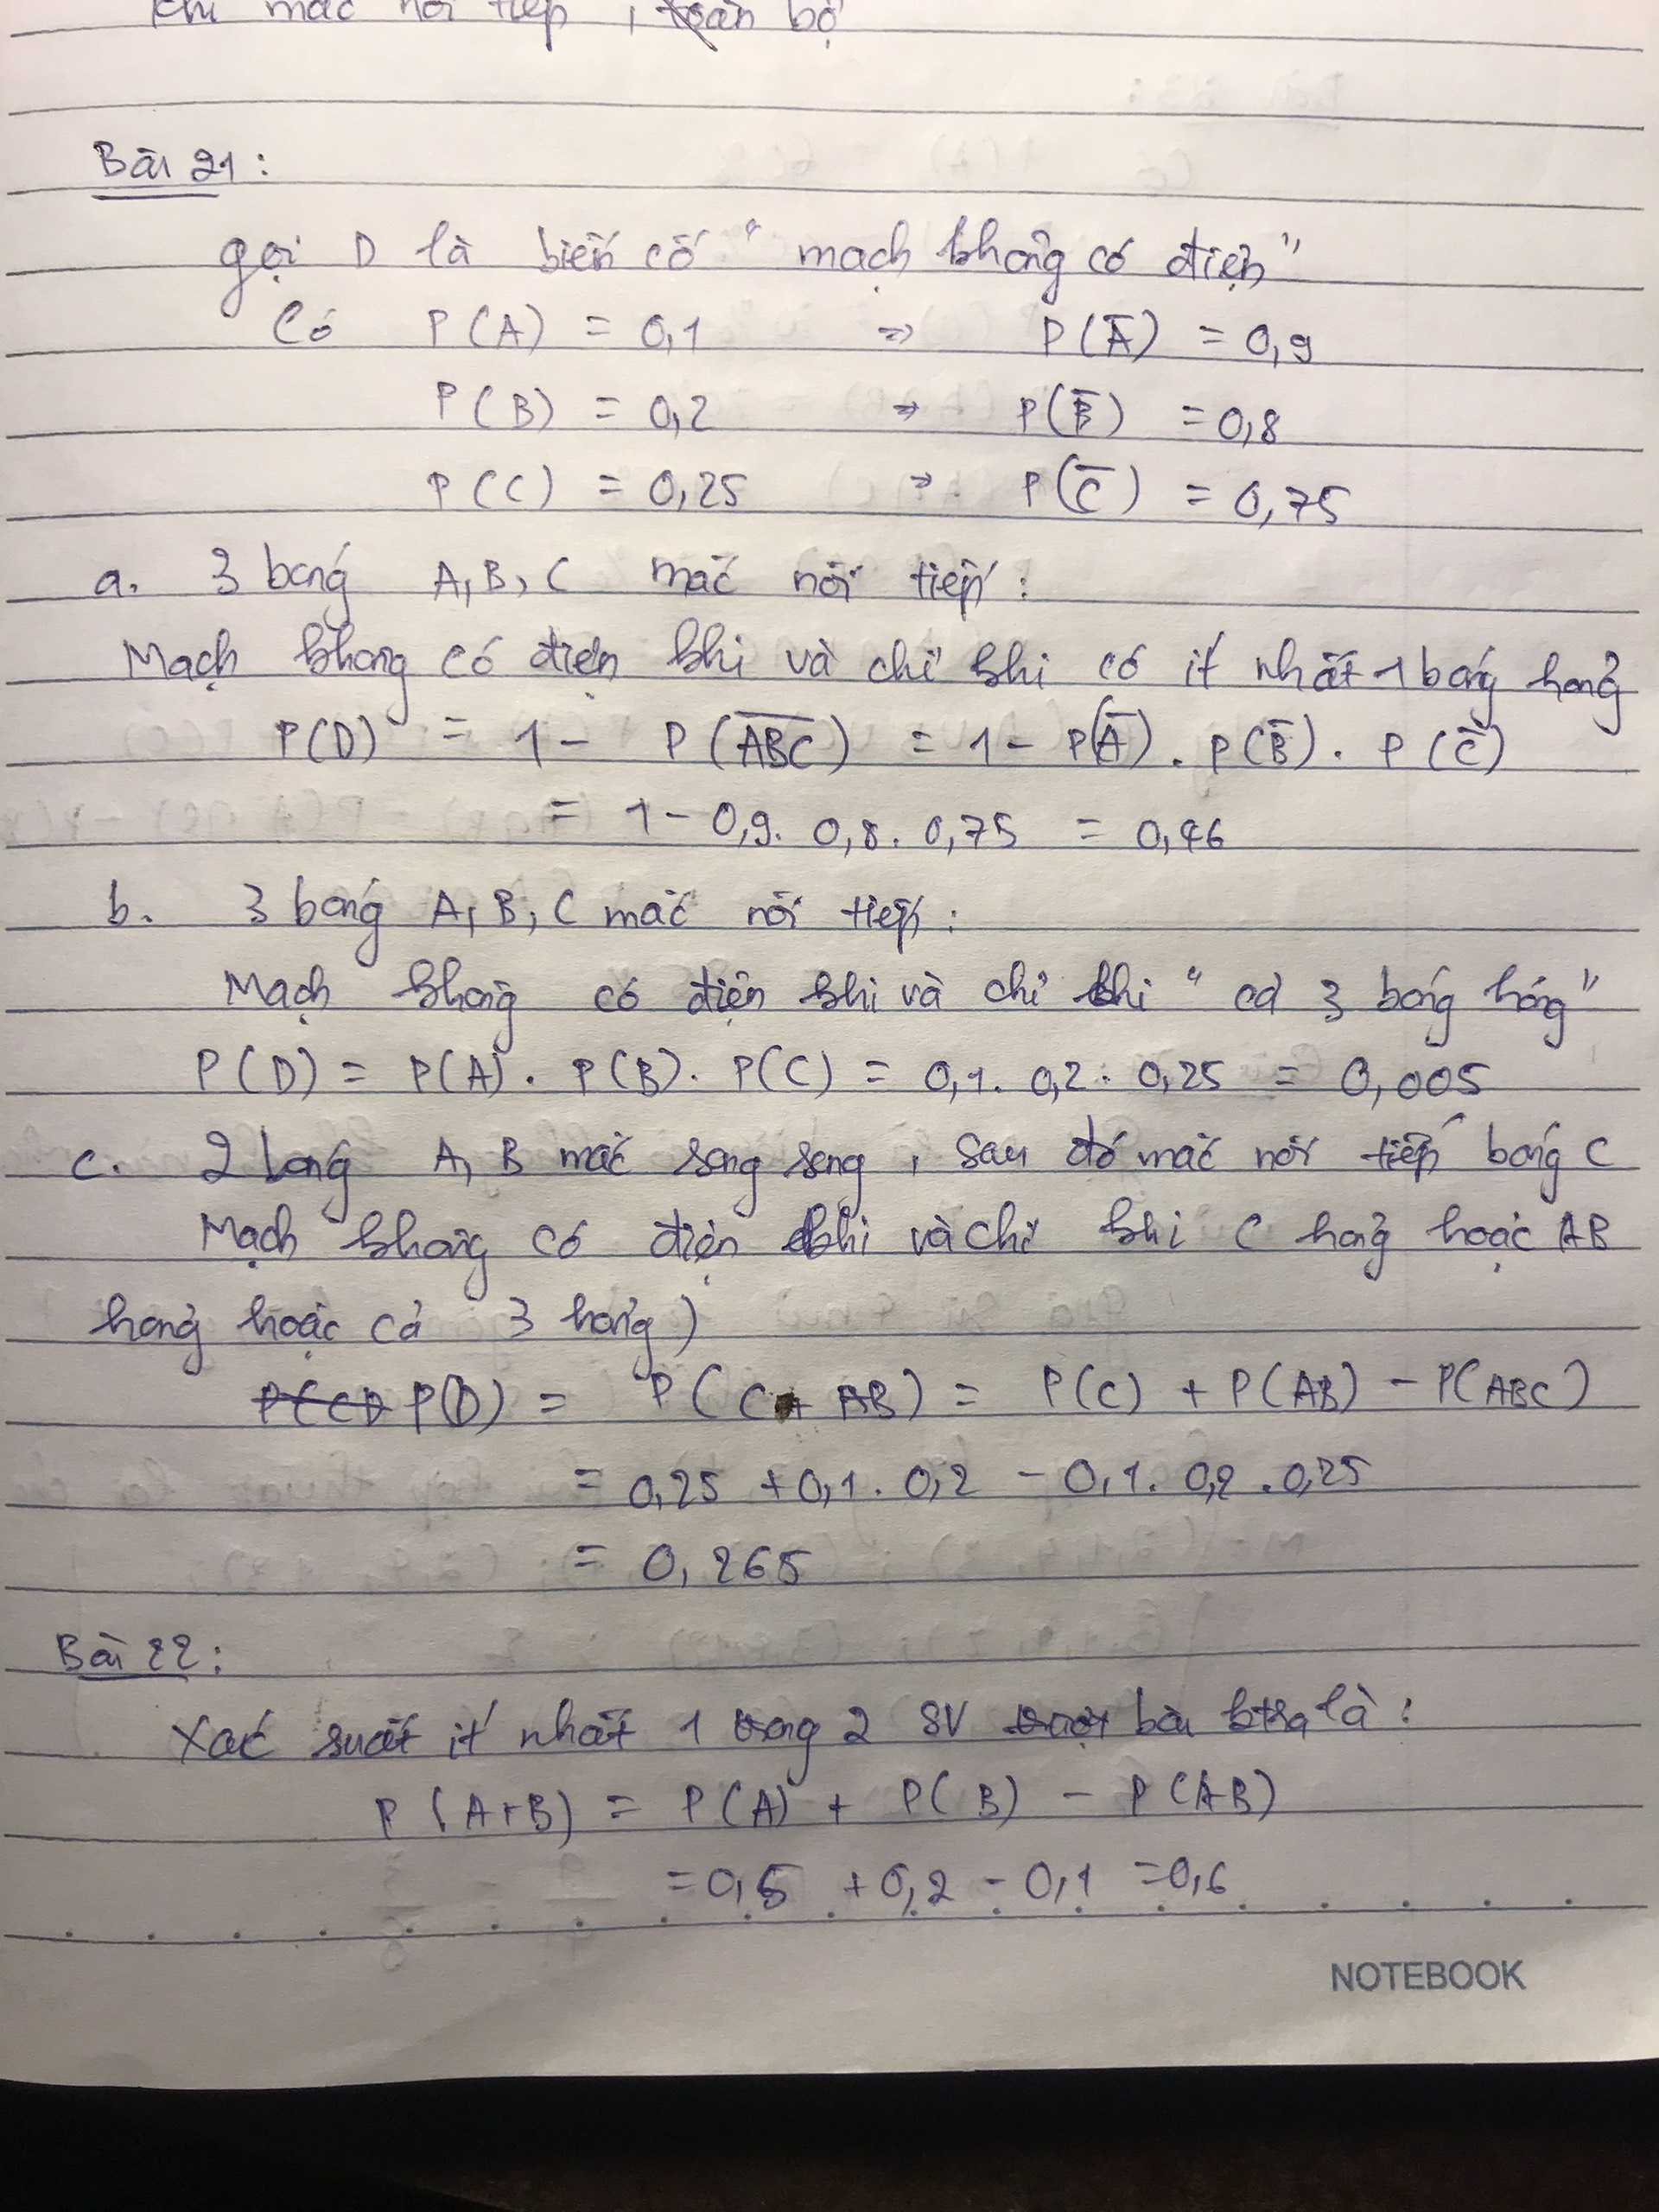 khi mắc nối tiếp, toàn bộ
Bài 21:
gọi D là biến cố "mạch không có điện"
Có P(A) = 0,1 => P(A̅) = 0,9
P(B) = 0,2 => P(B̅) = 0,8
P(C) = 0,25 => P(C̅) = 0,75
a. 3 bóng A, B, C mắc nối tiếp:
Mạch không có điện khi và chỉ khi có ít nhất 1 bóng hỏng
P(D) = 1 - P(A̅B̅C̅) = 1 - P(A̅) . P(B̅) . P(C̅)
= 1 - 0,9 . 0,8 . 0,75 = 0,46
b. 3 bóng A, B, C mắc nối tiếp:
Mạch không có điện khi và chỉ khi "cả 3 bóng hỏng"
P(D) = P(A) . P(B) . P(C) = 0,1 . 0,2 . 0,25 = 0,005
c. 2 bóng A, B mắc song song, sau đó mắc nối tiếp bóng C
Mạch không có điện khi và chỉ khi C hỏng hoặc AB
hỏng hoặc cả 3 hỏng)
P(D) = P(C + AB) = P(C) + P(AB) - P(ABC)
= 0,25 + 0,1 . 0,2 - 0,1 . 0,2 . 0,25
= 0,265
Bài 22:
Xác suất ít nhất 1 trong 2 SV trượt bài ktra là:
P(A+B) = P(A) + P(B) - P(AB)
= 0,5 + 0,2 - 0,1 = 0,6
NOTEBOOK